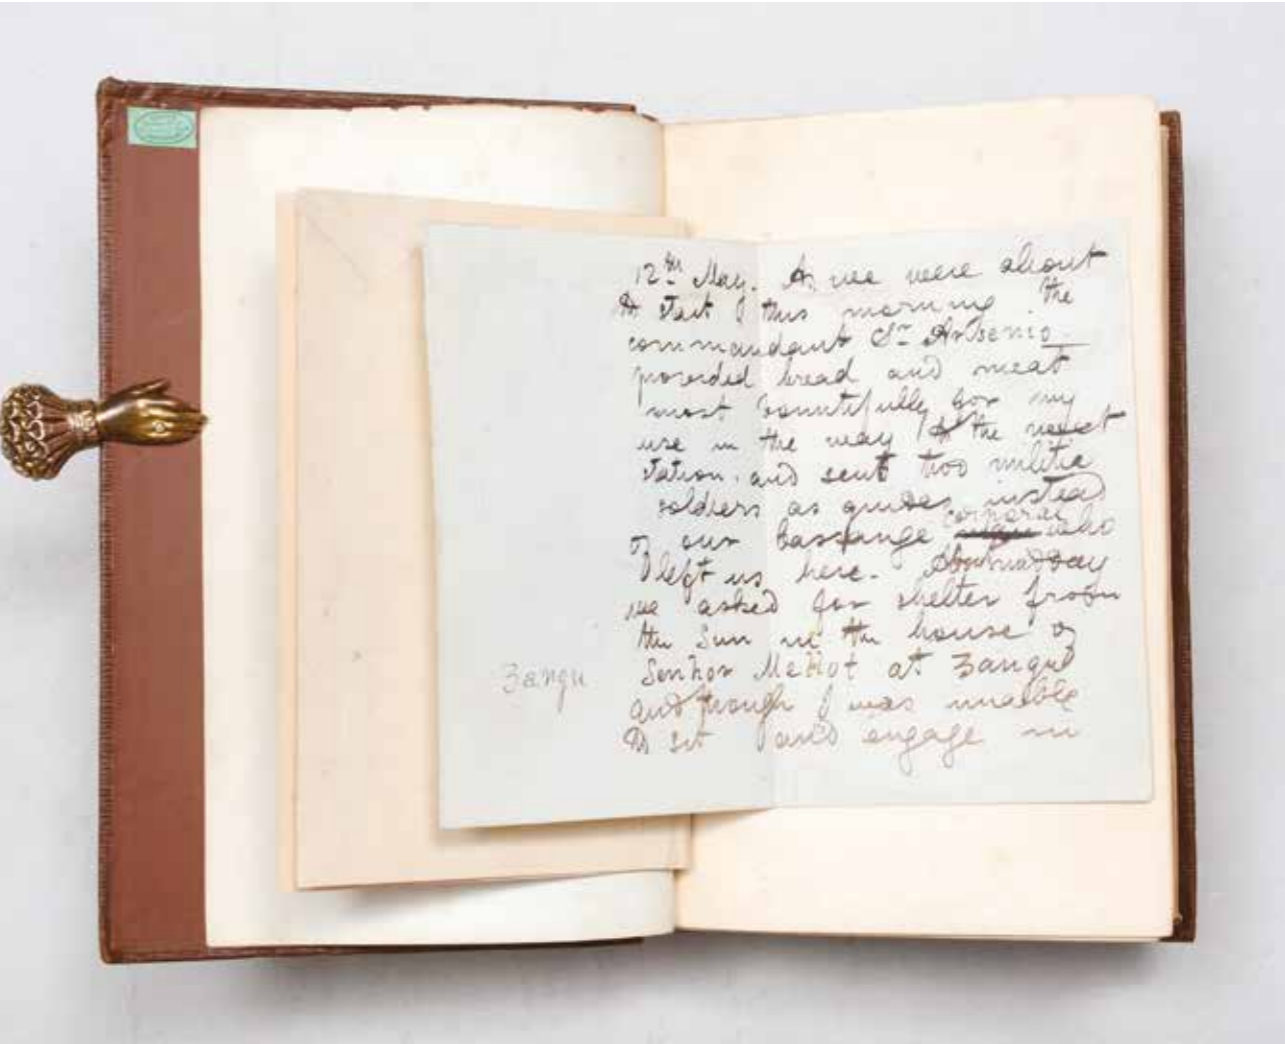 12th May. As we were about
to start this morning the
commandant Sr Arsenio
provided bread and meat
most bountifully for my
use in the way to the next
station. and sent two militia
soldiers as guides instead
of our Cassange corporal who
left us here. About midday
we asked for shelter from
the Sun in the house of
Senhor Mellot at Zangu
and though I was unable
to sit and engage in
Zangu